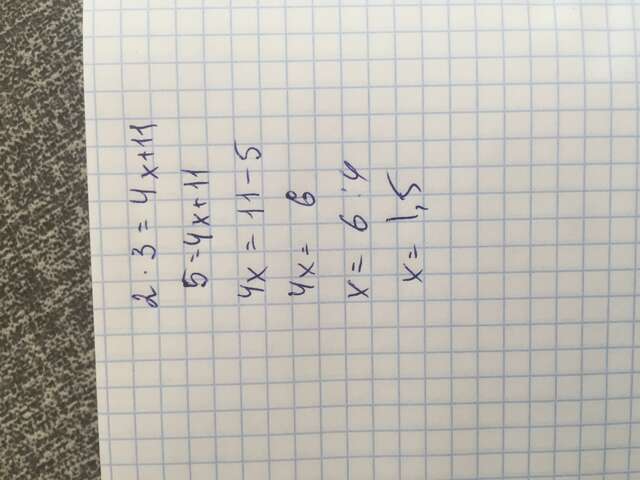 2 · 3 = 4x+11
5=4x+11
4x = 11-5
4x = 6
x = 6 : 4
x = 1,5